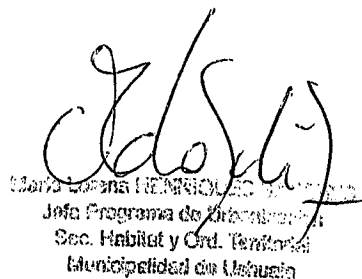 María Lorena HENRIQUES
Jefe Programa de Urbanización
Sec. Habitat y Ord. Territorial
Municipalidad de Ushuaia